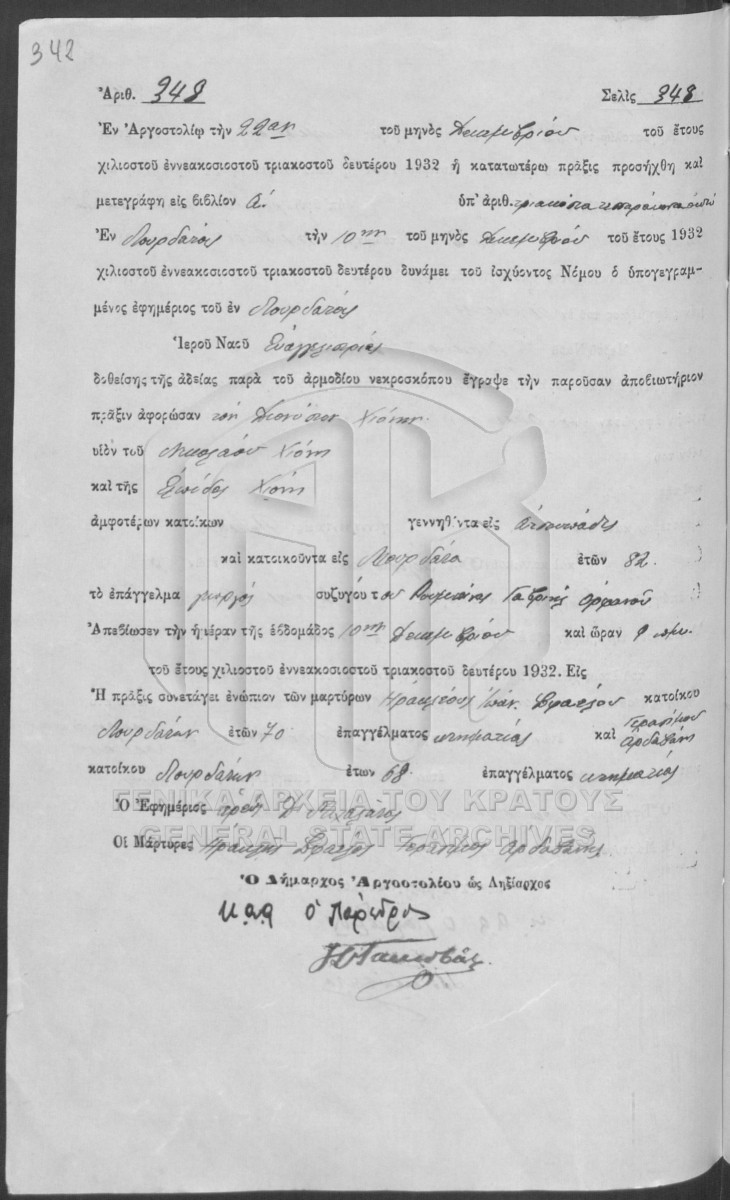 342
Ἀριθ. 348 Σελὶς 348
Ἐν Ἀργοστολίῳ τὴν 22αν τοῦ μηνὸς Δεκεμβρίου τοῦ ἔτους
χιλιοστοῦ ἐννεακοσιοστοῦ τριακοστοῦ δευτέρου 1932 ἡ κατατωτέρω πρᾶξις προσήχθη καὶ
μετεγράφη εἰς βιβλίον Α. ὑπ' ἀριθ.
Ἐν Λουρδάτοις τὴν 10ην τοῦ μηνὸς Δεκεμβρίου τοῦ ἔτους 1932
χιλιοστοῦ ἐννεακοσιοστοῦ τριακοστοῦ δευτέρου δυνάμει τοῦ ἰσχύοντος Νόμου ὁ ὑπογεγραμ-
μένος ἐφημέριος τοῦ ἐν Λουρδάτοις
Ἱεροῦ Ναοῦ Εὐαγγελιστρίας
δοθείσης τῆς ἀδείας παρὰ τοῦ ἁρμοδίου νεκροσκόπου ἔγραψε τὴν παροῦσαν ἀποβιωτήριον
πρᾶξιν ἀφορῶσαν τὸν Διονύσιον Χιόνην
υἱὸν τοῦ Νικολάου Χιόνη
καὶ τῆς Χιόνη
ἀμφοτέρων κατοίκων γεννηθέντα εἰς
καὶ κατοικοῦντα εἰς Λουρδάτα ἐτῶν 82.
τὸ ἐπάγγελμα γεωργὸς συζύγου τοῦ
Ἀπεβίωσεν τὴν ἡμέραν τῆς ἑβδομάδος 10ην Δεκεμβρίου καὶ ὥραν 9 π.μ.
τοῦ ἔτους χιλιοστοῦ ἐννεακοσιοστοῦ τριακοστοῦ δευτέρου 1932. Εἰς
Ἡ πρᾶξις συνετάγει ἐνώπιον τῶν μαρτύρων Ἡρακλέους Ἰωάν. κατοίκου
Λουρδάτων ἐτῶν 70 ἐπαγγέλματος κτηματίας καὶ Γερασίμου
κατοίκου Λουρδάτων ἐτων 68. ἐπαγγέλματος κτηματίας
Ὁ Ἐφημέριος
Οἱ Μάρτυρες Γεράσιμος
Ὁ Δήμαρχος Ἀργοστολίου ὡς Ληξίαρχος
κ.α.α ὁ Πάρεδρος
ΓΕΝΙΚΑ ΑΡΧΕΙΑ ΤΟΥ ΚΡΑΤΟΥΣ
GENERAL STATE ARCHIVES